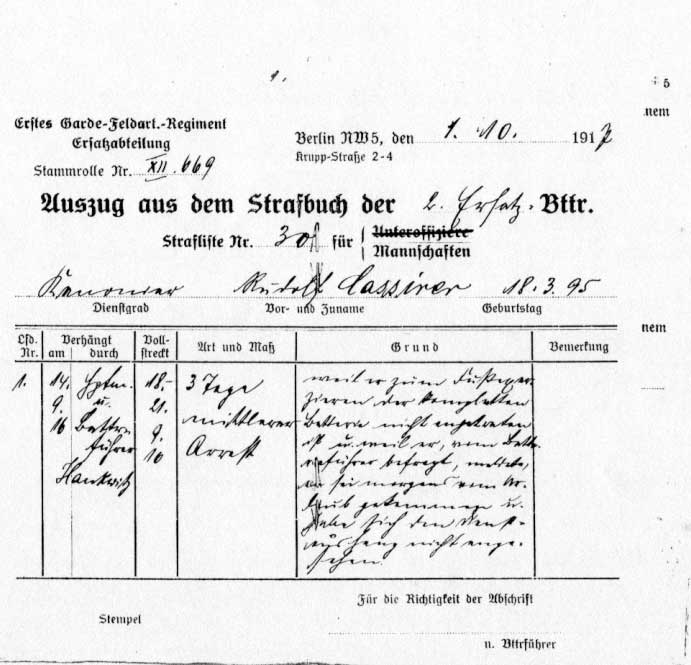 1.
5
nem
Erstes Garde-Feldart.-Regiment
Ersatzabteilung
Berlin NW5, den 1. 10. 1917
Krupp-Straße 2-4
Stammrolle Nr. XII. 669
Auszug aus dem Strafbuch der 2. Ersatz-Bttr.
Strafliste Nr. 30 für Unteroffiziere
Mannschaften
Kanonier Rudolf Cassirer 18. 3. 95
Dienstgrad Vor- und Zuname Geburtstag
nem
Lfd. Nr. Verhängt am durch Vollstreckt Art und Maß Grund Bemerkung
1. 14. Hptm. 18.- 3 Tage weil er zum Fußexer-
9. u. 21. mittlerer zieren der kompletten
16 Battr. 9. Arrest Batterie nicht angetreten
führer 16 ist u. weil er, vom Battr.
Hankwitz führer befragt, meldete,
er sei morgens vom Ur-
laub gekommen u.
habe sich den Dienst-
aushang nicht ange-
sehen.
Für die Richtigkeit der Abschrift
Stempel
u. Bttrführer